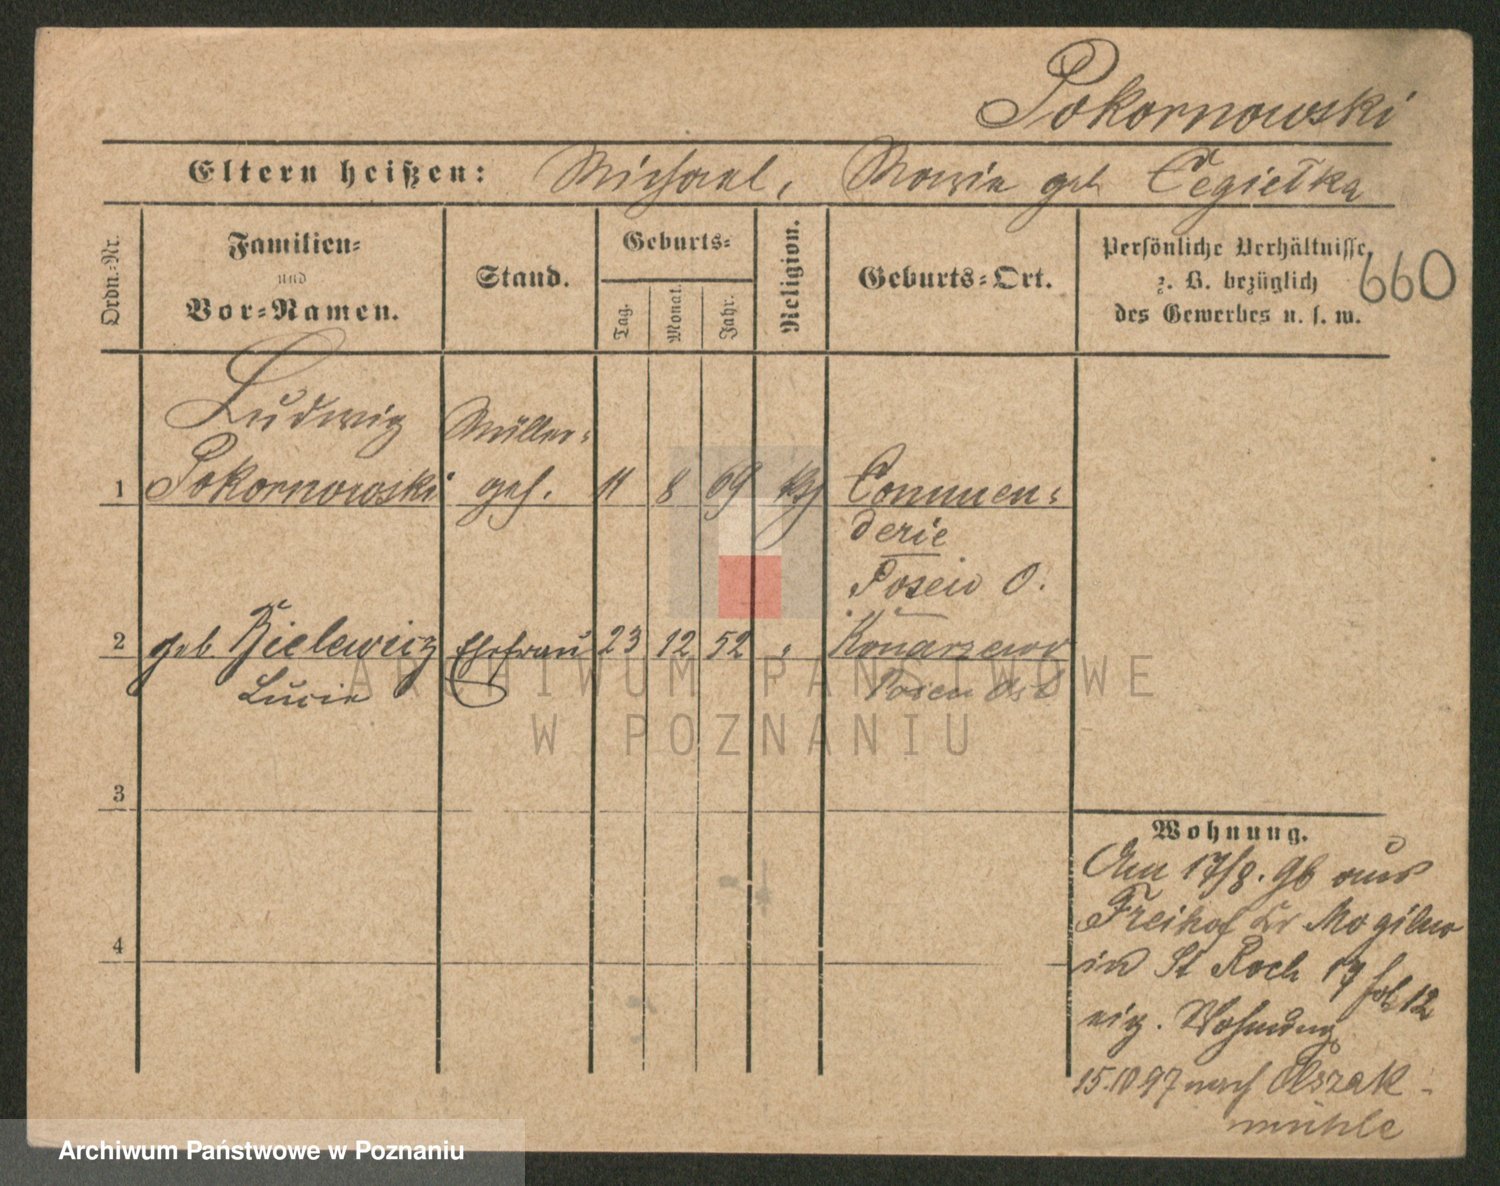 Pokornowski
Eltern heißen: Michael, Maria geb Cegiełka
Ordn.-Nr.
Familien-
und
Vor-Namen.
Stand.
Geburts-
Tag.
Monat.
Jahr.
Religion.
Geburts-Ort.
Persönliche Verhältnisse,
z. B. bezüglich
des Gewerbes u. s. w.
660
Ludwig Müller-
1 Pokornowski ges. 11 8 69 kth Commen-
derie
Posen O.
2 geb Bielewicz Ehefrau 23 12 52 " Konarzewo
Lucie Posen Ost
3
4
Wohnung.
Am 17/8. 96 aus
Freihof Kr Mogilno
in St Roch 17
eig. Wohnung
15.10 97 nach Olszak-
mühle
ARCHIWUM PAŃSTWOWE
W POZNANIU
Archiwum Państwowe w Poznaniu